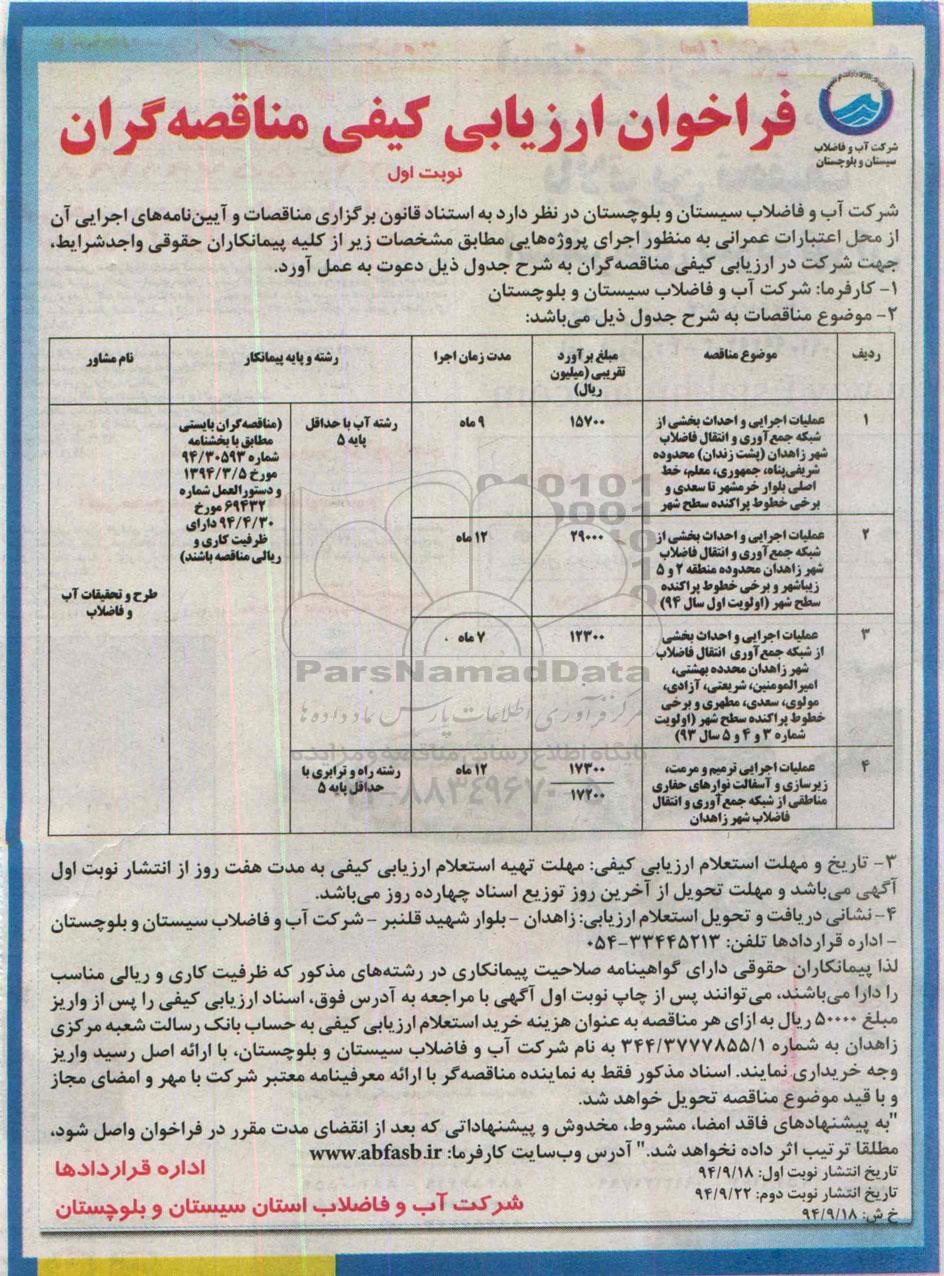 شرکت آب و فاضلاب
سیستان و بلوچستان
فراخوان ارزیابی کیفی مناقصه‌گران
نوبت اول
شرکت آب و فاضلاب سیستان و بلوچستان در نظر دارد به استناد قانون برگزاری مناقصات و آیین‌نامه‌های اجرایی آن
از محل اعتبارات عمرانی به منظور اجرای پروژه‌هایی مطابق مشخصات زیر از کلیه پیمانکاران حقوقی واجدشرایط،
جهت شرکت در ارزیابی کیفی مناقصه‌گران به شرح جدول ذیل دعوت به عمل آورد.
۱- کارفرما: شرکت آب و فاضلاب سیستان و بلوچستان
۲- موضوع مناقصات به شرح جدول ذیل می‌باشد:
ردیف
موضوع مناقصه
مبلغ برآورد
تقریبی (میلیون
ریال)
مدت زمان اجرا
رشته و پایه پیمانکار
نام مشاور
۱
عملیات اجرایی و احداث بخشی از
شبکه جمع‌آوری و انتقال فاضلاب
شهر زاهدان (پشت زندان) محدوده
شریفی‌پناه، جمهوری، معلم، خط
اصلی بلوار خرمشهر تا سعدی و
برخی خطوط پراکنده سطح شهر
۱۵۷۰۰
۹ ماه
رشته آب با حداقل
پایه ۵
(مناقصه‌گران بایستی
مطابق با بخشنامه
شماره ۹۴/۳۰۵۹۳
مورخ ۱۳۹۴/۳/۵
و دستورالعمل شماره
۶۹۴۳۲ مورخ
۹۴/۴/۳۰ دارای
ظرفیت کاری و
ریالی مناقصه باشند)
طرح و تحقیقات آب
و فاضلاب
۲
عملیات اجرایی و احداث بخشی از
شبکه جمع‌آوری و انتقال فاضلاب
شهر زاهدان محدوده منطقه ۲ و ۵
زیباشهر و برخی خطوط پراکنده
سطح شهر (اولویت اول سال ۹۴)
۲۹۰۰۰
۱۲ ماه
۳
عملیات اجرایی و احداث بخشی
از شبکه جمع‌آوری انتقال فاضلاب
شهر زاهدان محدده بهشتی،
امیرالمومنین، شریعتی، آزادی،
مولوی، سعدی، مطهری و برخی
خطوط پراکنده سطح شهر (اولویت
شماره ۳ و ۴ و ۵ سال ۹۳)
۱۲۳۰۰
۷ ماه
۴
عملیات اجرایی ترمیم و مرمت،
زیرسازی و آسفالت نوارهای حفاری
مناطقی از شبکه جمع‌آوری و انتقال
فاضلاب شهر زاهدان
۱۷۳۰۰
۱۷۲۰۰
۱۲ ماه
رشته راه و ترابری با
حداقل پایه ۵
ParsNamadData
مرکز فرآوری اطلاعات پارس نماد داده ها
پایگاه اطلاع رسانی مناقصه و مزایده
۳- تاریخ و مهلت استعلام ارزیابی کیفی: مهلت تهیه استعلام ارزیابی کیفی به مدت هفت روز از انتشار نوبت اول
آگهی می‌باشد و مهلت تحویل از آخرین روز توزیع اسناد چهارده روز می‌باشد.
۴- نشانی دریافت و تحویل استعلام ارزیابی: زاهدان - بلوار شهید قلنبر - شرکت آب و فاضلاب سیستان و بلوچستان
- اداره قراردادها تلفن: ۳۳۴۴۵۲۱۳-۰۵۴
لذا پیمانکاران حقوقی دارای گواهینامه صلاحیت پیمانکاری در رشته‌های مذکور که ظرفیت کاری و ریالی مناسب
را دارا می‌باشند، می‌توانند پس از چاپ نوبت اول آگهی با مراجعه به آدرس فوق، اسناد ارزیابی کیفی را پس از واریز
مبلغ ۵۰۰۰۰ ریال به ازای هر مناقصه به عنوان هزینه خرید استعلام ارزیابی کیفی به حساب بانک رسالت شعبه مرکزی
زاهدان به شماره ۳۴۴/۳۷۷۷۸۵۵/۱ به نام شرکت آب و فاضلاب سیستان و بلوچستان، با ارائه اصل رسید واریز
وجه خریداری نمایند. اسناد مذکور فقط به نماینده مناقصه‌گر با ارائه معرفینامه معتبر شرکت با مهر و امضای مجاز
و با قید موضوع مناقصه تحویل خواهد شد.
"به پیشنهادهای فاقد امضا، مشروط، مخدوش و پیشنهاداتی که بعد از انقضای مدت مقرر در فراخوان واصل شود،
مطلقا ترتیب اثر داده نخواهد شد." آدرس وب‌سایت کارفرما: www.abfasb.ir
تاریخ انتشار نوبت اول: ۹۴/۹/۱۸
تاریخ انتشار نوبت دوم: ۹۴/۹/۲۲
خ ش: ۹۴/۹/۱۸
اداره قراردادها
شرکت آب و فاضلاب استان سیستان و بلوچستان